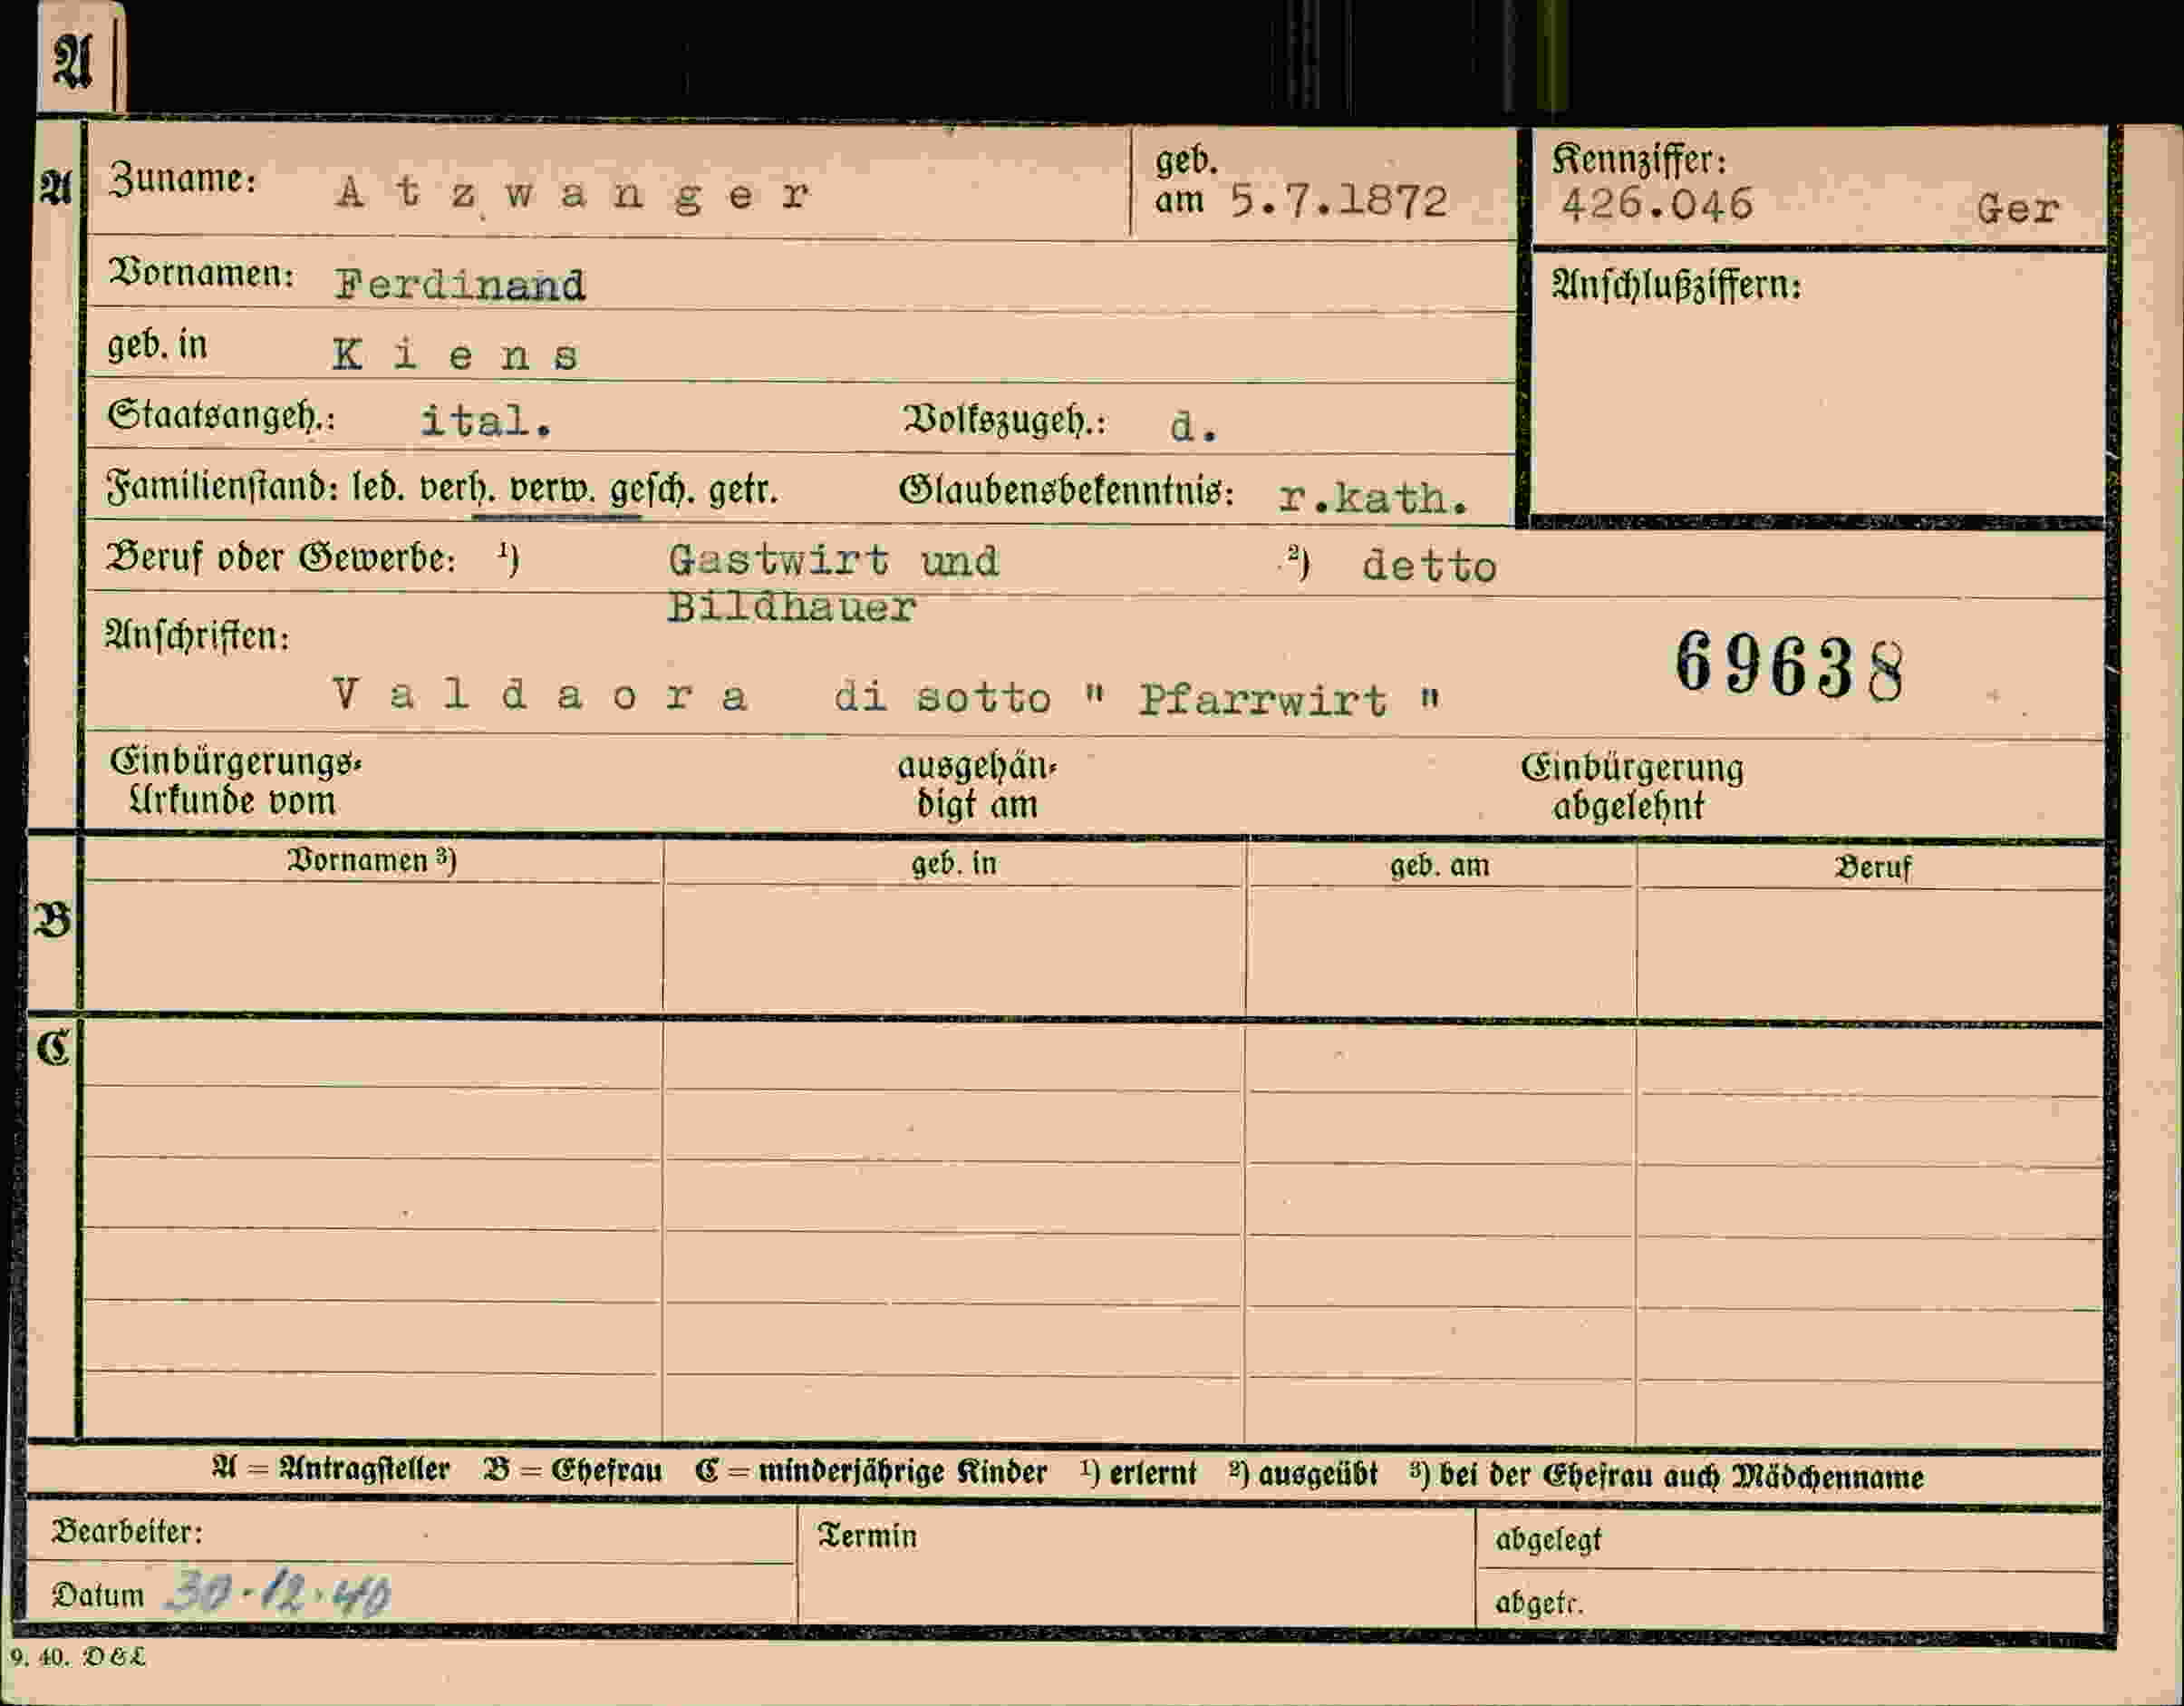 A
A
Zuname: Atzwanger geb. am 5.7.1872 Kennziffer: 426.046 Ger
Vornamen: Ferdinand Anschlußziffern:
geb. in Kiens
Staatsangeh.: ital. Volkszugeh.: d.
Familienstand: led. verh. verw. gesch. getr. Glaubensbekenntnis: r.kath.
Beruf oder Gewerbe: ¹) Gastwirt und ²) detto
Bildhauer
Anschriften:
69638
Valdaora di sotto " Pfarrwirt "
Einbürgerungs- ausgehän- Einbürgerung
Urkunde vom digt am abgelehnt
B
Vornamen ³) geb. in geb. am Beruf
C
A = Antragsteller B = Ehefrau C = minderjährige Kinder ¹) erlernt ²) ausgeübt ³) bei der Ehefrau auch Mädchenname
Bearbeiter: Termin abgelegt
Datum 30.12.40 abgetr.
9. 40. D & L